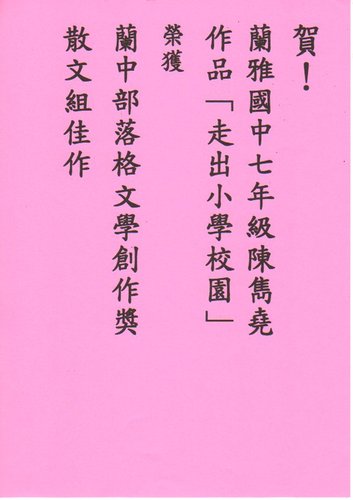 賀！
蘭雅國中七年級陳雋堯
作品「走出小學校園」
榮獲
蘭中部落格文學創作獎
散文組佳作